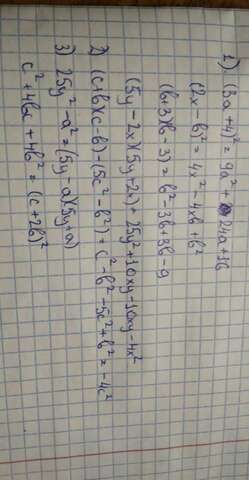 1). (3a+4)² = 9a² + 24a+16
(2x-b)² = 4x²-4xb+b²
(b+3)(b-3) = b²-3b+3b-9
(5y-2x)(5y+2x) + 25y²+10xy-10xy-4x²
2) (c+b)(c-b)-(5c²-b²) = c²-b²-5c²+b² = -4c²
3) 25y²-a² = (5y-a)(5y+a)
c²+4bc+4b² = (c+2b)²